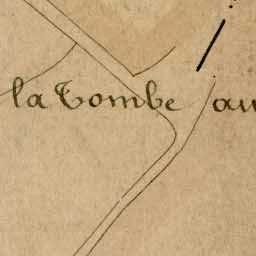 la Tombe au